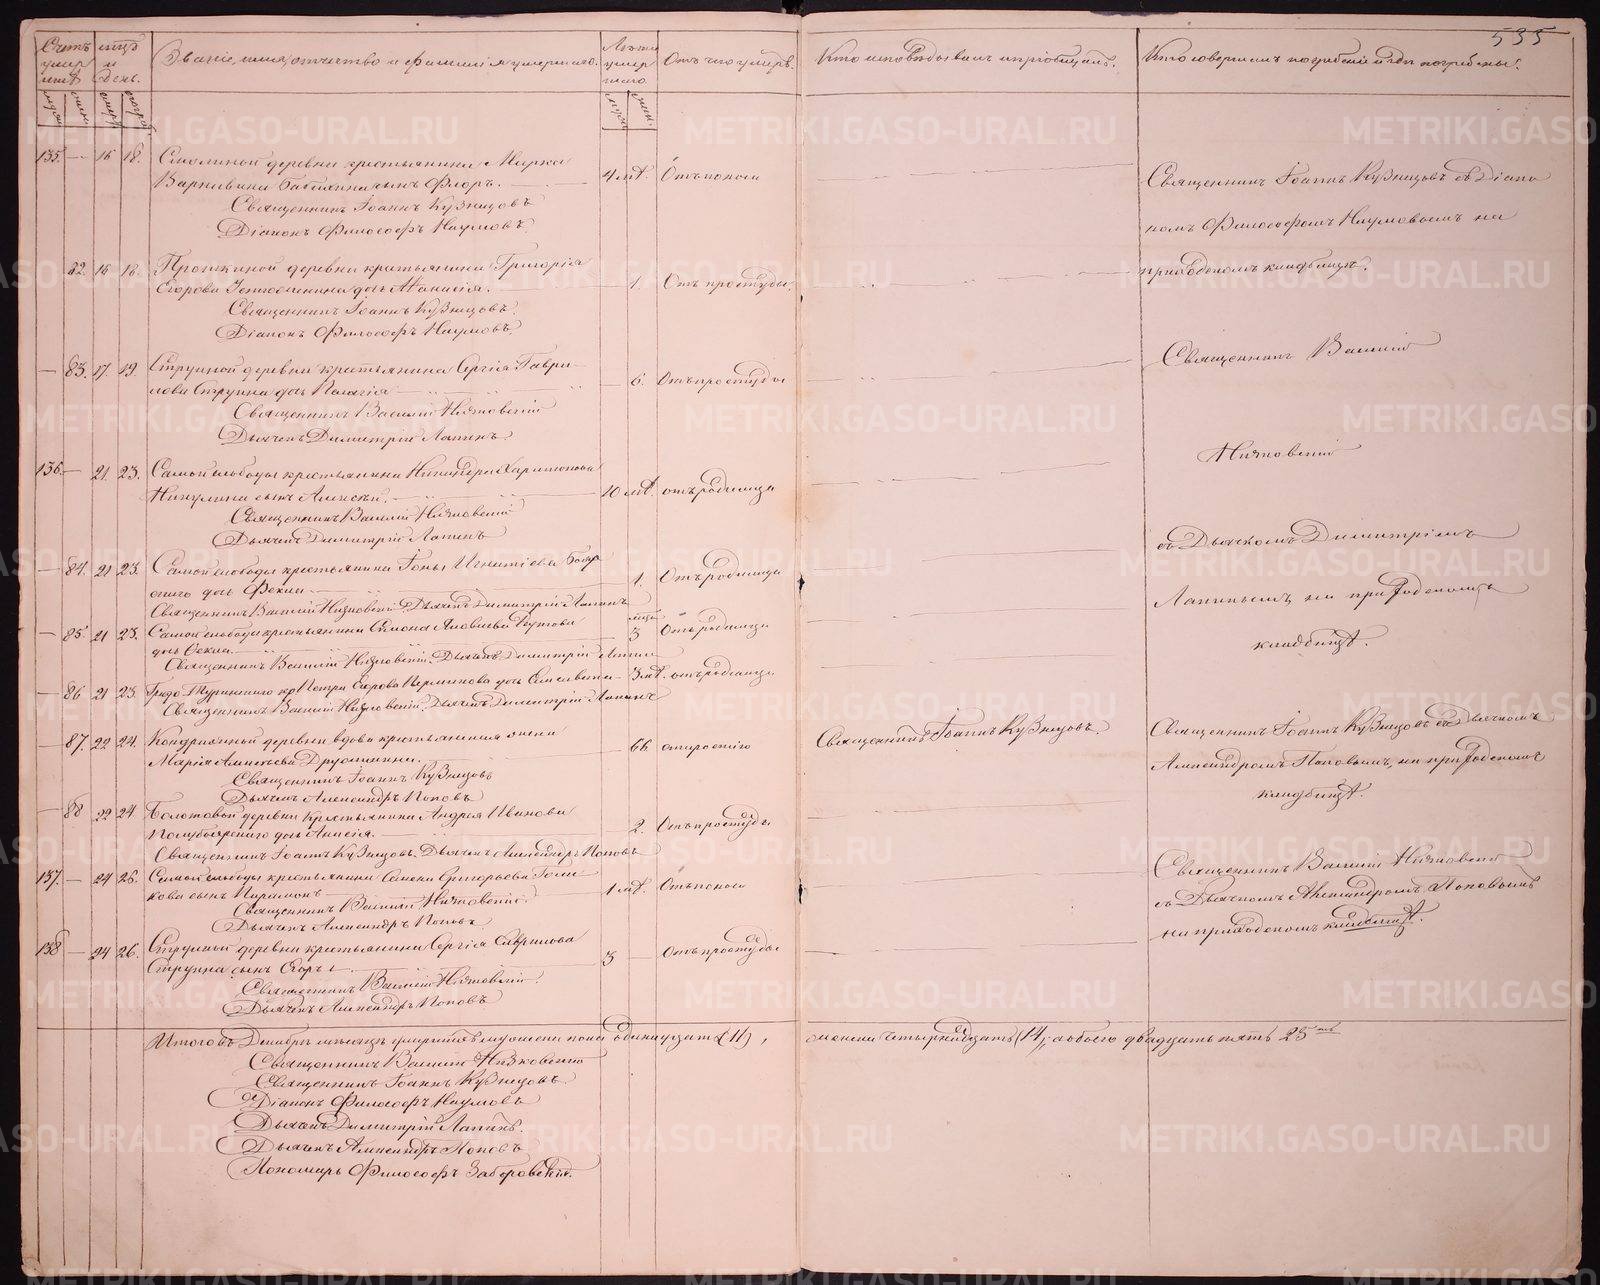 535
Счетъ умер шихъ
м-цъ и день.
Званіе, имя, отчество и фамилія умершаго.
Лѣта умер шаго.
Отъ чего умеръ.
Кто исповѣдывалъ и пріобщалъ.
Кто совершалъ погребеніе и гдѣ погребены.
135. — 16 18. деревни крестьянина Марка
сынъ Флоръ. 4 мѣ. Отъ поноса
Священникъ Іоаннъ Кузнецовъ
Діаконъ Философъ Наумовъ
Священникъ Іоаннъ Кузнецовъ съ Діако
номъ Философомъ Наумовымъ на
приходскомъ кладбищѣ.
82. 16 18. деревни крестьянина Григорія
Егорова дочь Аѳанасія. 1. Отъ простуды.
Священникъ Іоаннъ Кузнецовъ.
Діаконъ Философъ Наумовъ.
— 83. 17. 19. деревни крестьянина Сергія Гаври
лова Струнина дочь Пелагія 6. Отъ простуды
Священникъ Василій Низковскій
Дьячекъ Димитрій Лапинъ.
Священникъ Василій
Низковскій
съ Дьячкомъ Димитріемъ
Лапинымъ, на приходскомъ
кладбищѣ.
136. — 21. 23. Самой слободы крестьянина Никандра Харитонова
Никулина сынъ Алексѣй. 10 мѣ. отъ родимца
Священникъ Василій Низковскій
Дьячекъ Димитрій Лапинъ
— 84. 21 23. Самой слободы крестьянина Іоны Игнатіева Бояр
скаго дочь Фекла 1. Отъ родимца
Священникъ Василій Низковскій. Дьячекъ Димитрій Лапинъ
— 85. 21 23. Самой слободы крестьянина Симона Яковлева
дочь Фекла. 3 мѣс. Отъ родимца
Священникъ Василій Низковскій. Дьячекъ Димитрій Лапинъ
— 86 21 23. Градо-Туринскаго Петра Егорова дочь Елисавета 3 мѣ. отъ родимца
Священникъ Василій Низковскій. Дьячекъ Димитрій Лапинъ
— 87. 22 24. деревни вдова крестьянская жена
Марія Алексѣева 66. старостію
Священникъ Іоаннъ Кузнецовъ
Дьячекъ Александръ Поповъ
Священникъ Іоаннъ Кузнецовъ.
Священникъ Іоаннъ Кузнецовъ съ Дьячкомъ
Александромъ Поповымъ, на приходскомъ
кладбищѣ.
— 88 22 24 Болотовой деревни крестьянина Андрея Иванова
дочь Анисія. 2. Отъ простуды
Священникъ Іоаннъ Кузнецовъ. Дьячекъ Александръ Поповъ
137. — 24 26. Самой слободы крестьянина Семена Григорьева Голи
кова сынъ Парамонъ 1 мѣ. Отъ поноса
Священникъ Василій Низковскій.
Дьячекъ Александръ Поповъ.
Священникъ Василій Низковскій
съ Дьячкомъ Александромъ Поповымъ
на приходскомъ кладбищѣ.
138 — 24 26. деревни крестьянина Сергія Гаврилова
Струнина сынъ Егоръ 3 Отъ простуды
Священникъ Василій Низковскій.
Дьячекъ Александръ Поповъ
Итого въ Декабрѣ мѣсяцѣ умершихъ мужеска пола одинадцать (11), женска четырнадцать (14), а обоего двадцать пять 25ть
Священникъ Василій Низковскій
Священникъ Іоаннъ Кузнецовъ.
Діаконъ Философъ Наумовъ
Дьячекъ Димитрій Лапинъ.
Дьячекъ Александръ Поповъ
Пономарь Философъ Заборовскій.
METRIKI.GASO-URAL.RU